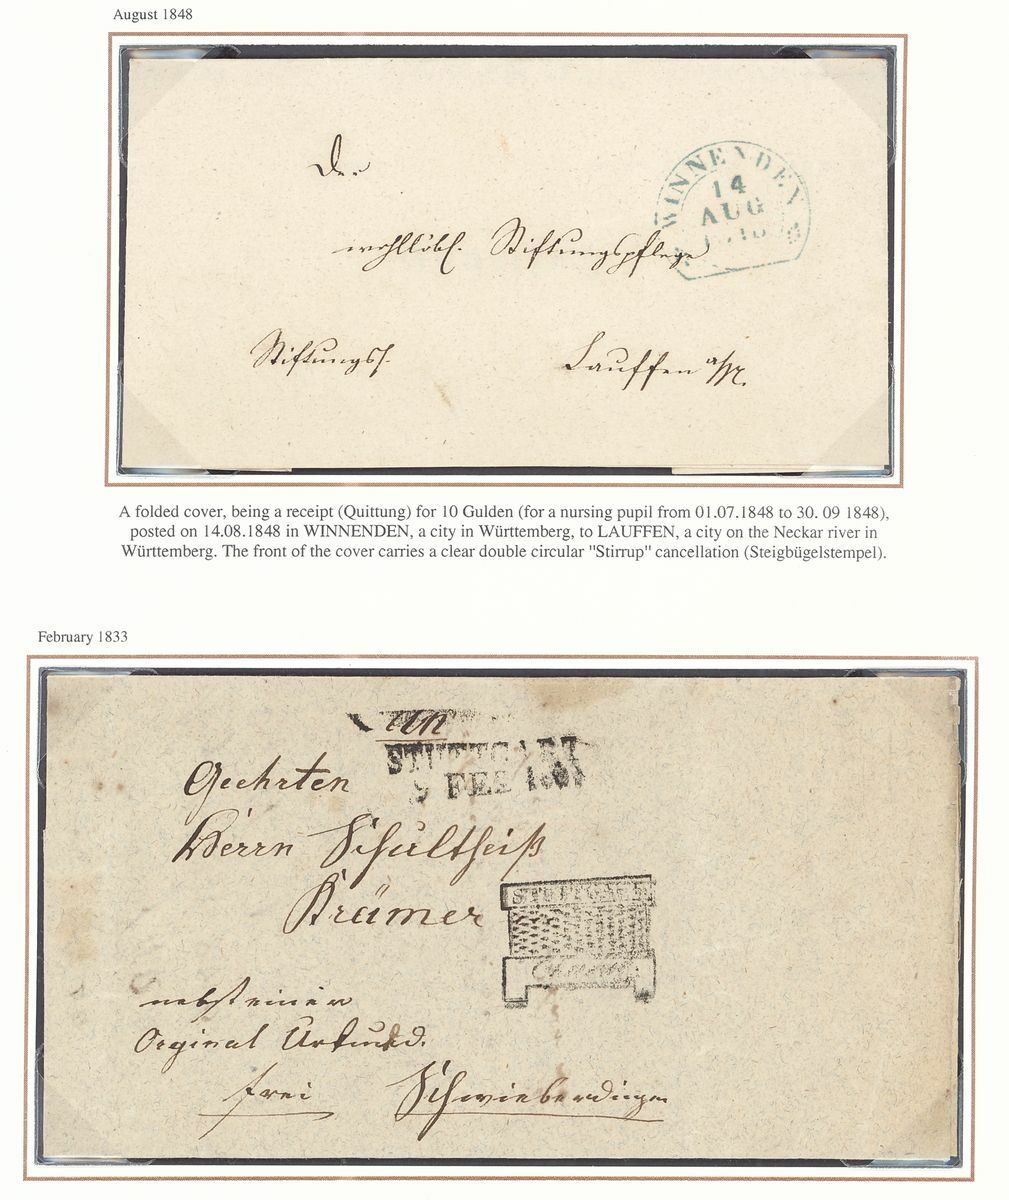 August 1848
WINNENDEN
14
AUG
1848
De.
wohllöbl. Stiftungspflege
Stiftungss.
Lauffen a/N.
A folded cover, being a receipt (Quittung) for 10 Gulden (for a nursing pupil from 01.07.1848 to 30. 09 1848),
posted on 14.08.1848 in WINNENDEN, a city in Württemberg, to LAUFFEN, a city on the Neckar river in
Württemberg. The front of the cover carries a clear double circular "Stirrup" cancellation (Steigbügelstempel).
February 1833
An
STUTTGART
9 FEB
Geehrten
Herrn Schultheiß
Krämer
STUTTGART
nebst einer
Orginal Urkund.
frei Schwieberdingen